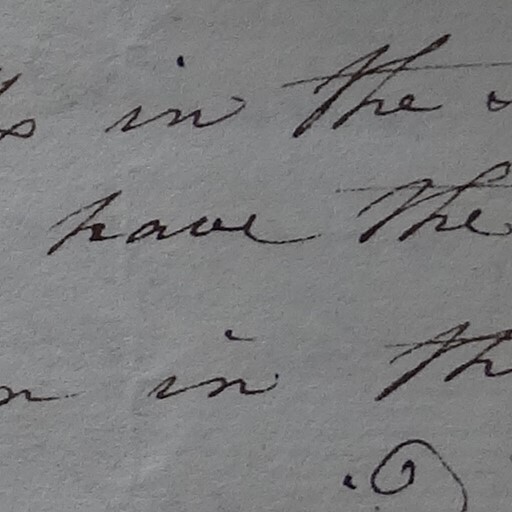 in the
have the
in th